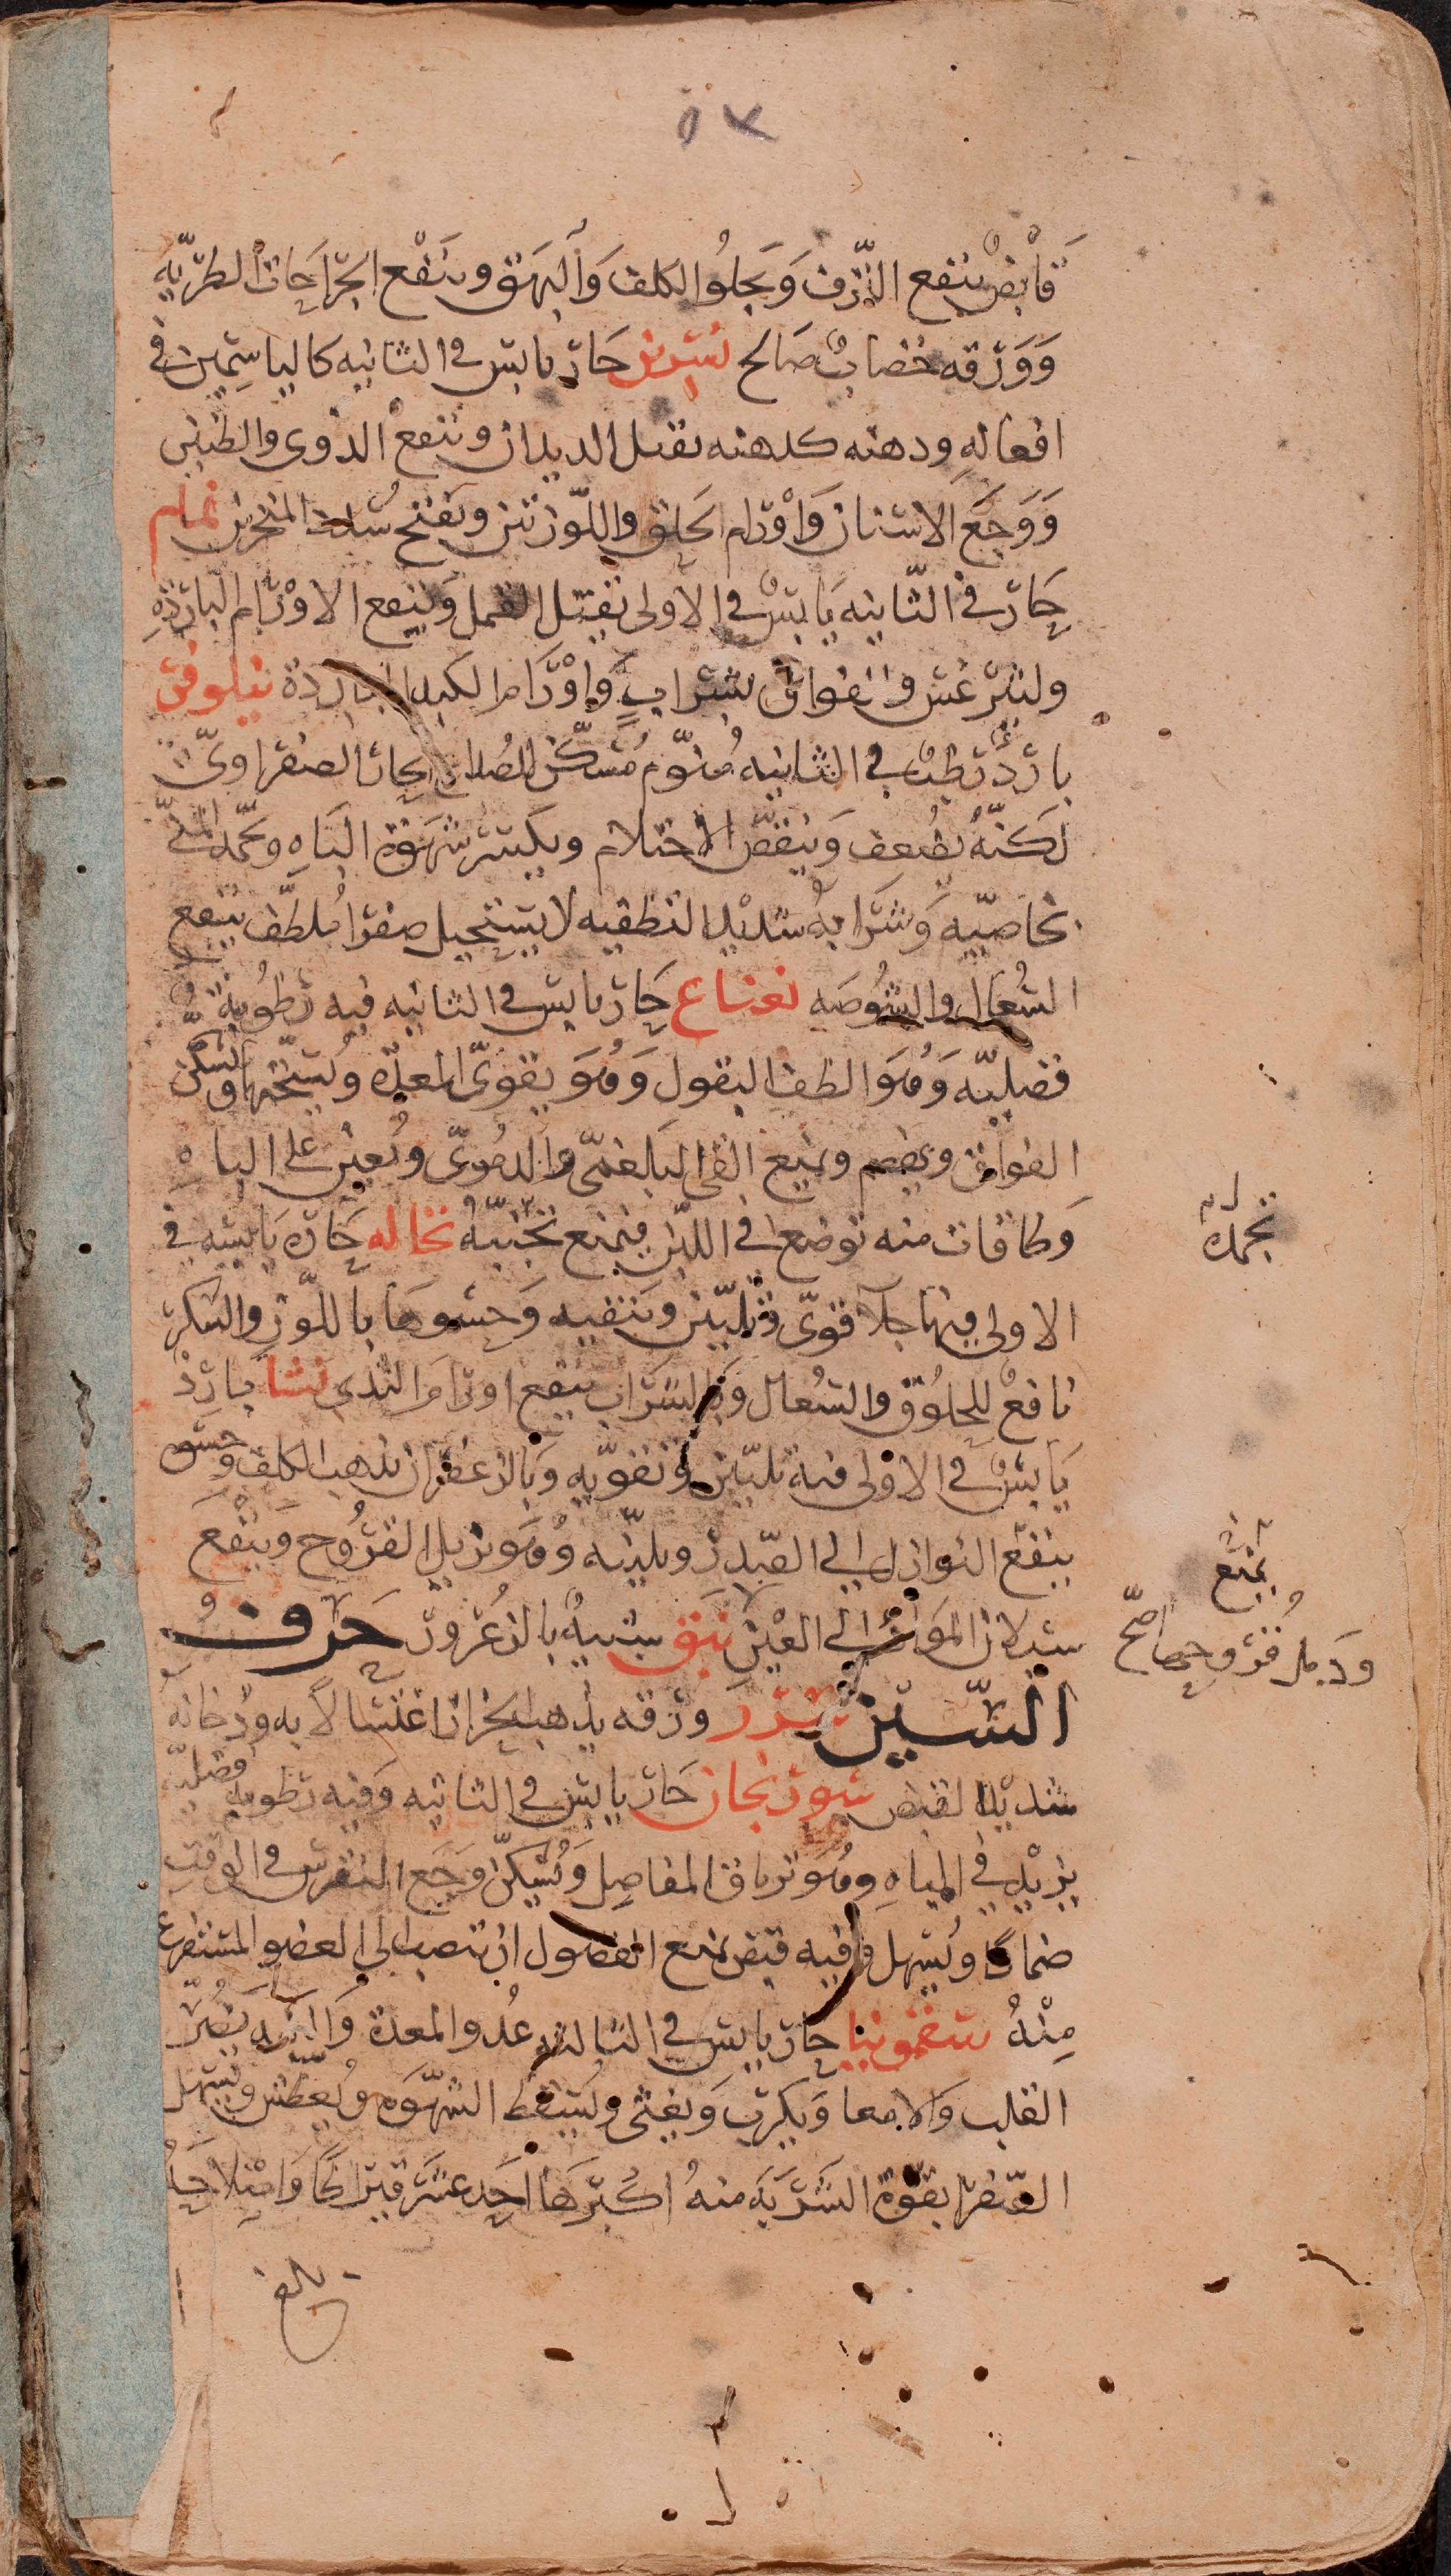 ٥٧
قَابض ينفع النزف وَيجلُو الكلف وَالبَهق وينفع الجراحَات الطريّه
وَوَرقه خضابٌ صَالح نسرين حَار يابس في الثانيه كالياسِمين في
افعاله ودهنه كدهنه يقتل الديدان وينفع الدوى والطنين
وَوَجَع الاسنان وَاوْرام الحلق واللّوزتين ويفتح سُدد المنخرين نمام
حَار في الثّانيه يَابسٌ في الاولى يقتل القمل وَينفع الاوْرام البَاردَةِ
وليثرغس والفواق بشرابٍ وَاوْرَام الكبد البَاردة نيلوفر
باردٌ رَطبٌ في الثانيه مُنوّم مُسكّن للصُداع الحار الصفراوىّ
لَكنّهُ يُضعف وَينقصُ الاحتلام ويكسر شهوَة البَاهِ ويجمّد المنىّ
بخاصّيّه وَشرَابهُ شديد التطفيه لا يستحيل صفرا مُلطّف ينفع
السُعَال والشُوصَه نعناع حَار يابس في الثانيه فيه رُطُوبَةٌ
فضليّه وَهُوَ الطف البقول وَهُوَ يقوىّ المعدة ويُسخّنها ويُسكّن
الفواق ويهضم ويمنع القى البَلغمىّ والدموىّ ويُعين على الباه
وَطاقات منه توضع في اللبن فيمنع تجبّنهُ نخاله حَاره يَابسه في
الاولى فيها جلآ قوىّ وتليّين وَتنقيه وَحَشوهَا باللّوز والسّكر
نافعٌ للحلُوق والسُعال وَبالشراب ينفع اورَامَ الثّدى نشا بَاردٌ
يَابسٌ في الاولى فيه تليّين وَتقويه وَبالزعفران يذهب الكلف وحَسّوه
ينفع النوازل الى الصّدر ويليّنه وَهُوَ يزيل القرُوح وَينْفَع
سَيلان الموَاد الى العيْن نَبق شبيهٌ بالزعرُور حَرفُ
السّين سدر ورقه يذهب الحزاز اغتسالاً به ودُخانه
شديد القبض سورنجان حَار يابس في الثانيه وَفيه رُطوبه فضليّه
يزيْد في المياهِ وهُوَ ترياق المفاصِل ويُسكّن وَجَع النقرس في الوقت
ضماداً ويُسهل وَفيه قبض يمنع الفضول ان تنصب الى العضو المستفرغ
مِنْهُ سقمونيا حَار يابس في الثالثه عدُو المعدة وَالكبد يَضُرّ
القلب وَالامعا وَيُكرب وَيغثى ويُسقط الشهوَه ويُعطّش ويُسهل
الصّفرا بقوّة الشَرْبَة منهُ اكثرهَا احَد عشَر قيراطًا وَاصْلاحَهُ
بلغ
يجمد
يمنع
صحّ